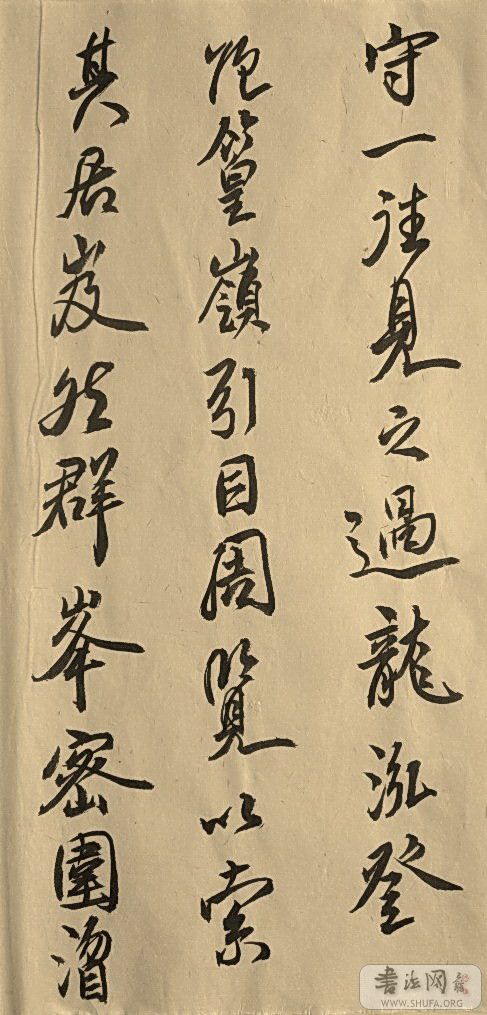 守一往見之過龍泓登
風篁嶺引目周覽以索
其居岌然群峯密圍溜
書法网
WWW.SHUFA.ORG